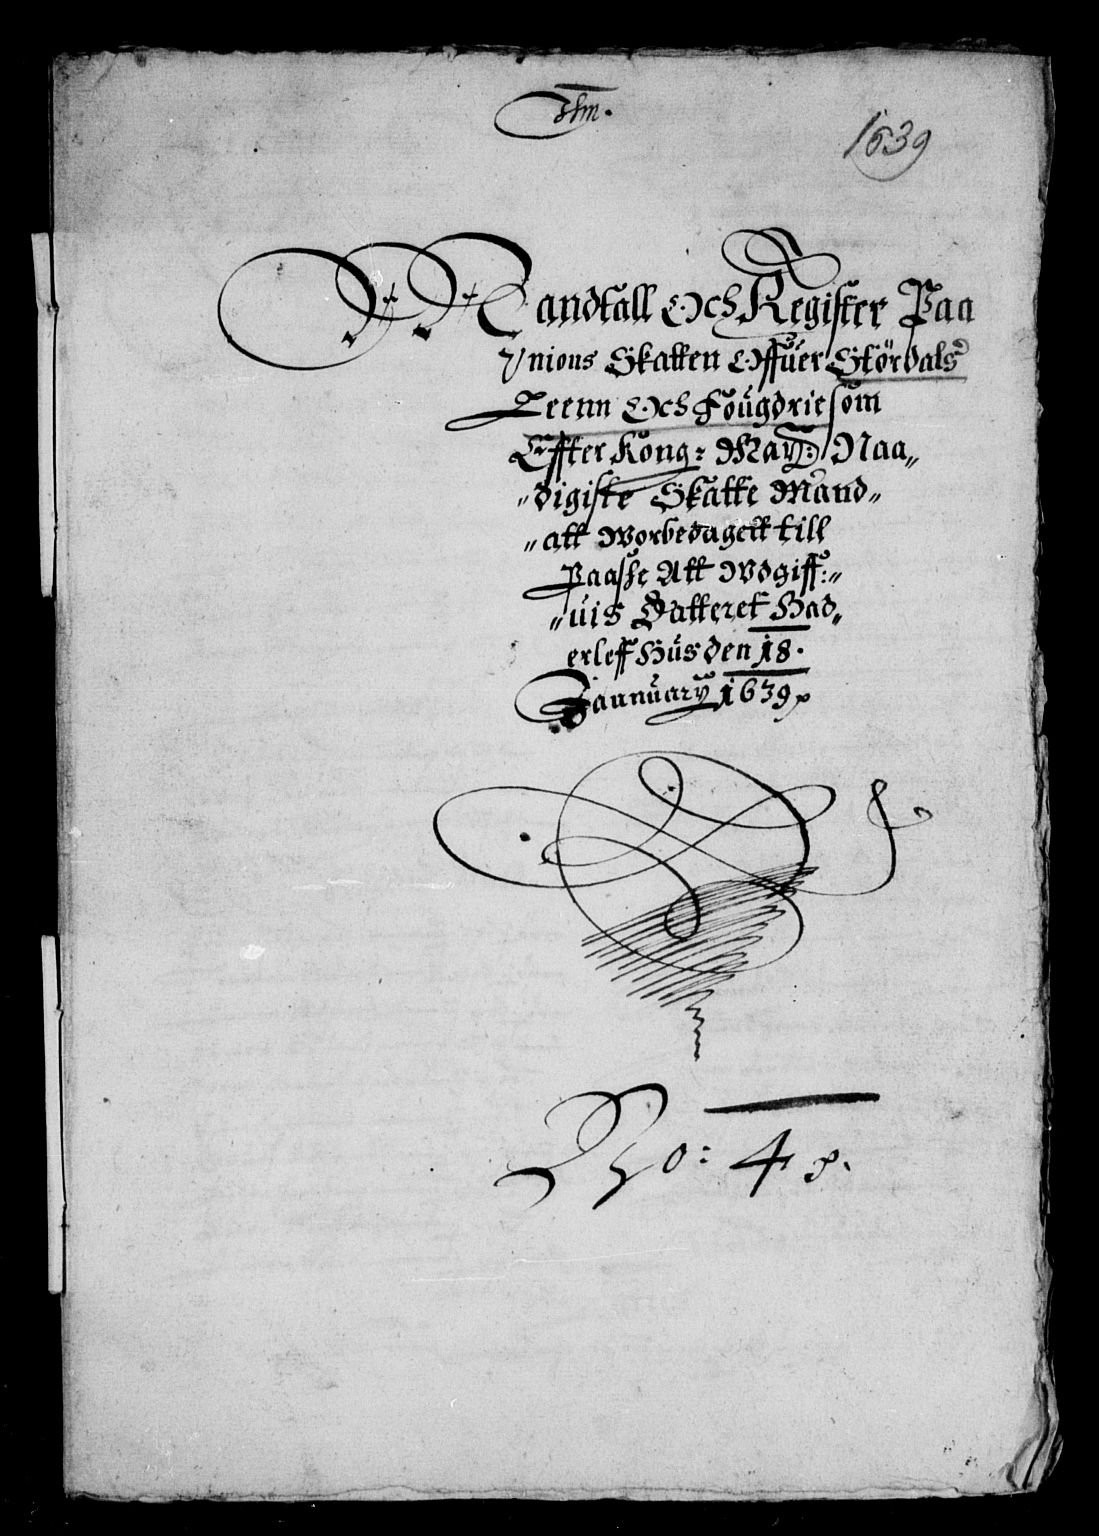 1639
Mandtall Och Register Paa
Vnions Skatten Offuer Stördals
Leenn Och Fougdrie som
Effter Kong: May: Naa„
„digiste Skatte Mand„
„att Worbedagett till
Paaske Att Wdgiff:„
„uis Datteret Had„
erleff Hus den 18.
Jannuary 1639
No: 4